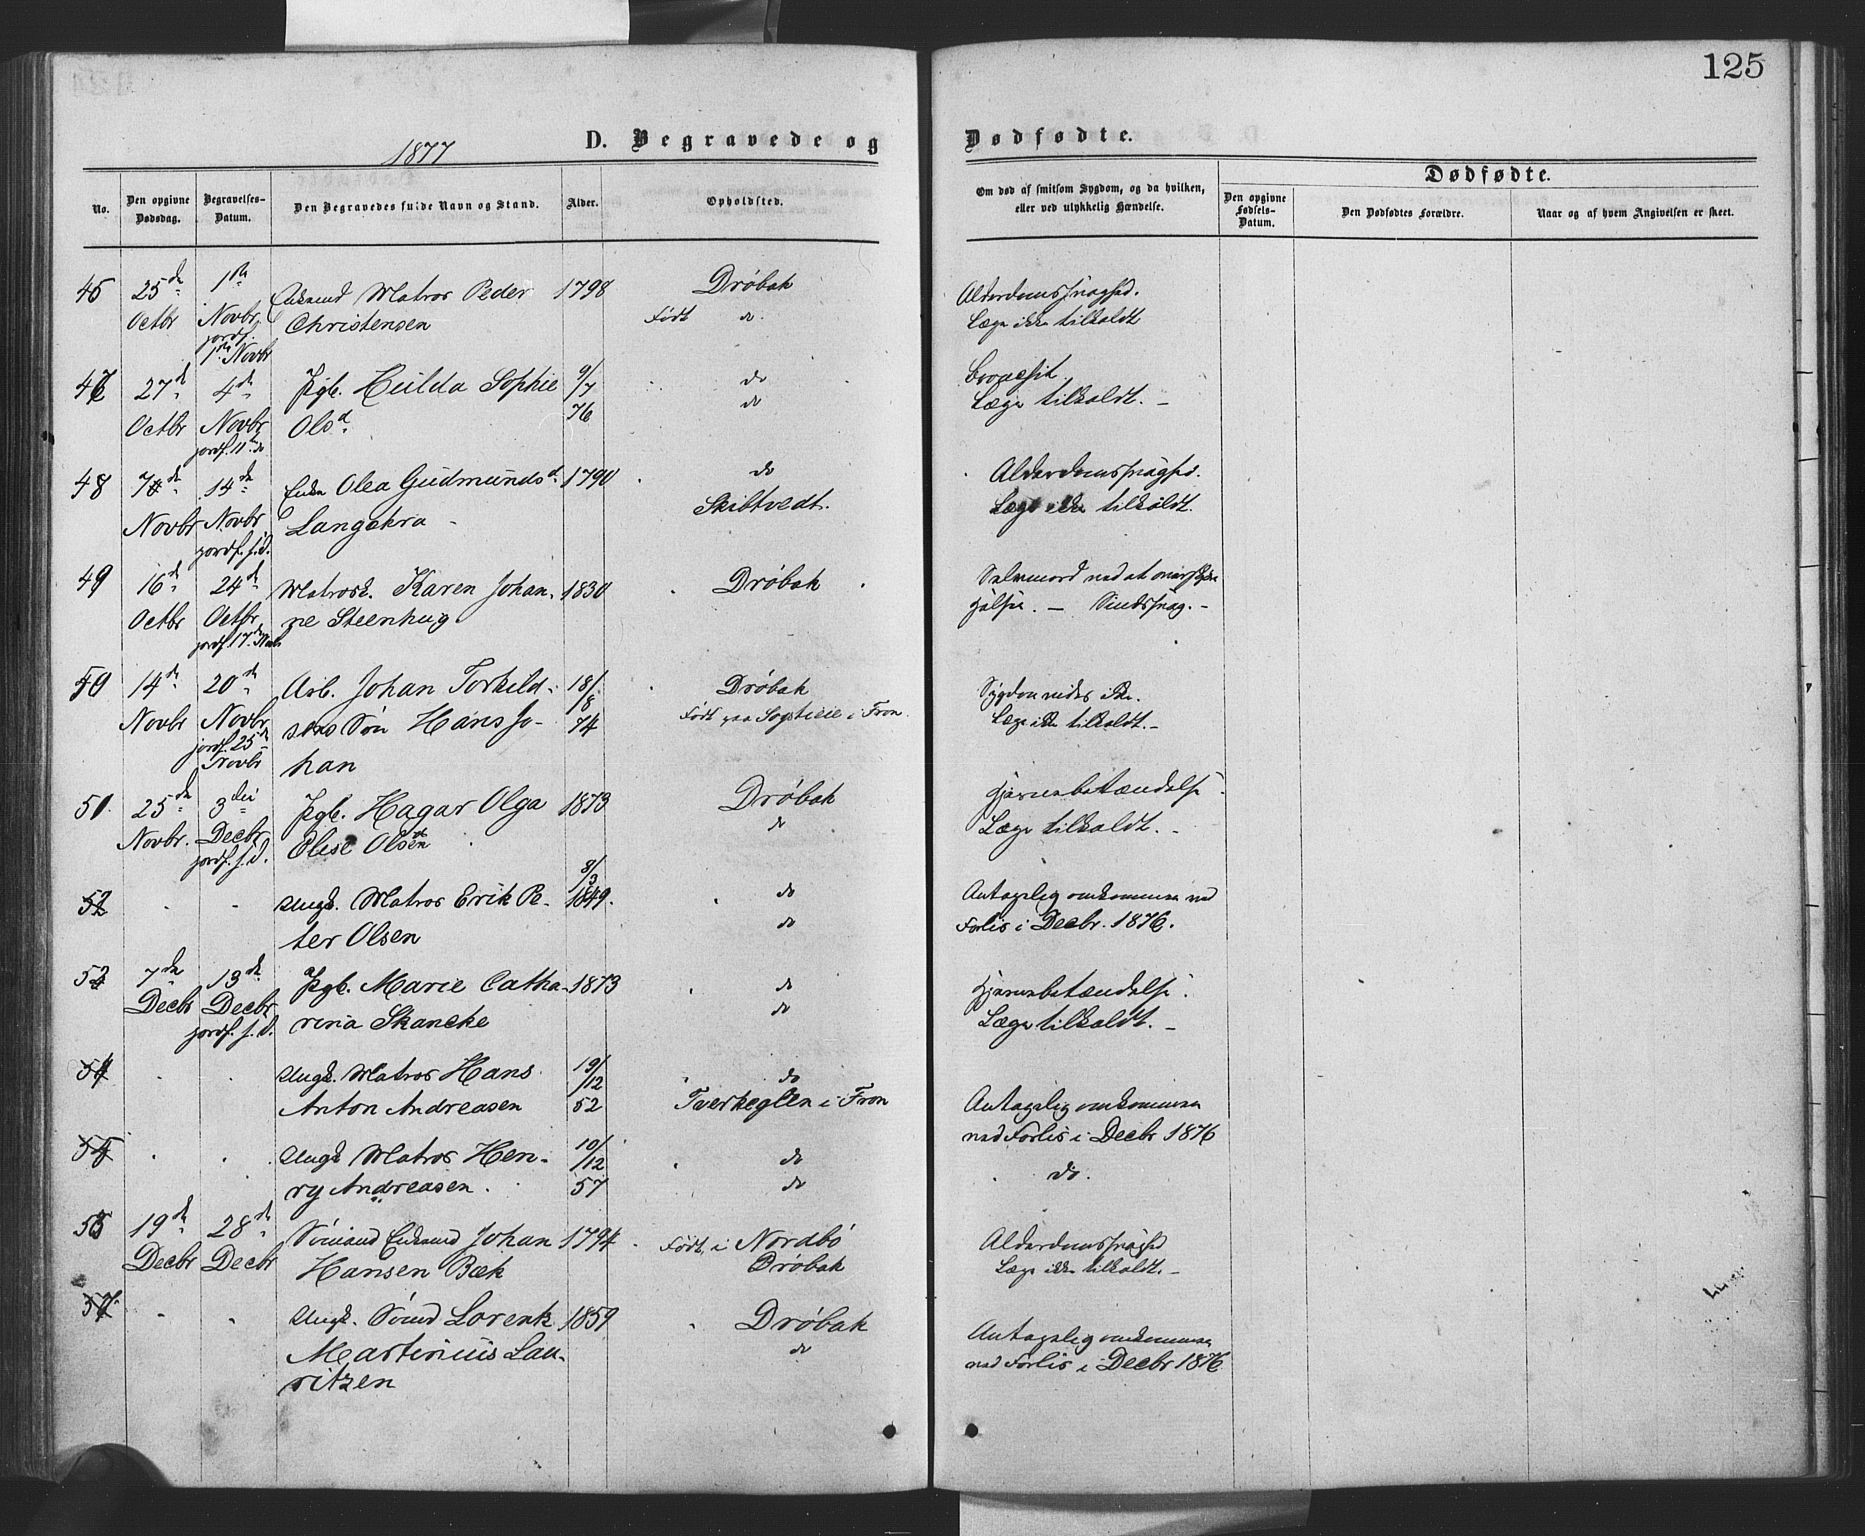 125
1877
D. Begravede og Dødfødte.
No.
Den opgivne Dødsdag.
Begravelses-Datum.
Den Begravedes fulde Navn og Stand.
Alder.
Opholdsted.
Om død af smitsom Sygdom, og da hvilken, eller ved ulykkelig Hændelse.
Dødfødte.
Den opgivne Fødsels-Datum.
Den Dødfødtes Forældre.
Naar og af hvem Angivelsen er skeet.
25de 1ste Enkemd Matros Peder 1798 Drøbak Alderdomssvaghed.
Octbr Novbr. Christensen Født do. Læge ikke tilkaldt
jordf. 1ste Novbr
27de 4de Pgb. Hulda Sophie 9/7 do
Octbr Novbr Olsd. 76 do Læge tilkaldt. -
jordf. 11te do
48 7de 14de Enke Olea Gudmundsd. 1790 do Alderdomssvaghed.
Novbr Novbr Langekra - Skibtvedt. Læge ikke tilkaldt.
jordf. s. d.
49 16de 24de Matrosk. Karen Johan- 1830 Drøbak Selvmord ved at overskjære
Octbr Octbr ne Steenhug Halsen. - Sindssvag. -
50 14de 20de Arb. Johan Torkild- 18/8 Drøbak Sygdom vides ikke.
Novbr Novbr sens Søn Hans Jo- 74 Født paa i Fron Læge ikke tilkaldt. -
jordf. 25de Novbr han
51. 25de 3die Pgb. Hagar Olga 1873 Drøbak Hjernebetændelse
Novbr. Decbr Elise Olsen do Læge tilkaldt. -
jordf. s. d.
52 Ungk. Matros Erik Pe- 8/3 1849. do Antagelig omkommen ved
ter Olsen do Forlis i Decbr. 1876.
7de 13de Pgb. Marie Catha- 1873 do Hjernebetændelse.
Decbr Decbr rina Skancke do Læge tilkaldt. -
jordf. s. d.
54 Ungk. Matros Hans 19/12 do
Anton Andreasen 52 Tverkeglen i Fron Antagelig omkommen
ved Forlis i Decbr 1876
55 Ungk Matros Hen- 10/12 do do.
ry Andreasen. 57 do
19de 28de Sømand Enkemd Johan 1794 Født i Nordbø Alderdomssvaghed
Decbr Decbr Hansen Bæk Drøbak Læge ikke tilkaldt. -
57. Ungk. Sømd Lorenk 1859 Drøbak Antagelig omkommen
Martinius Lau- do ved Forlis i Decbr 1876
ritzen